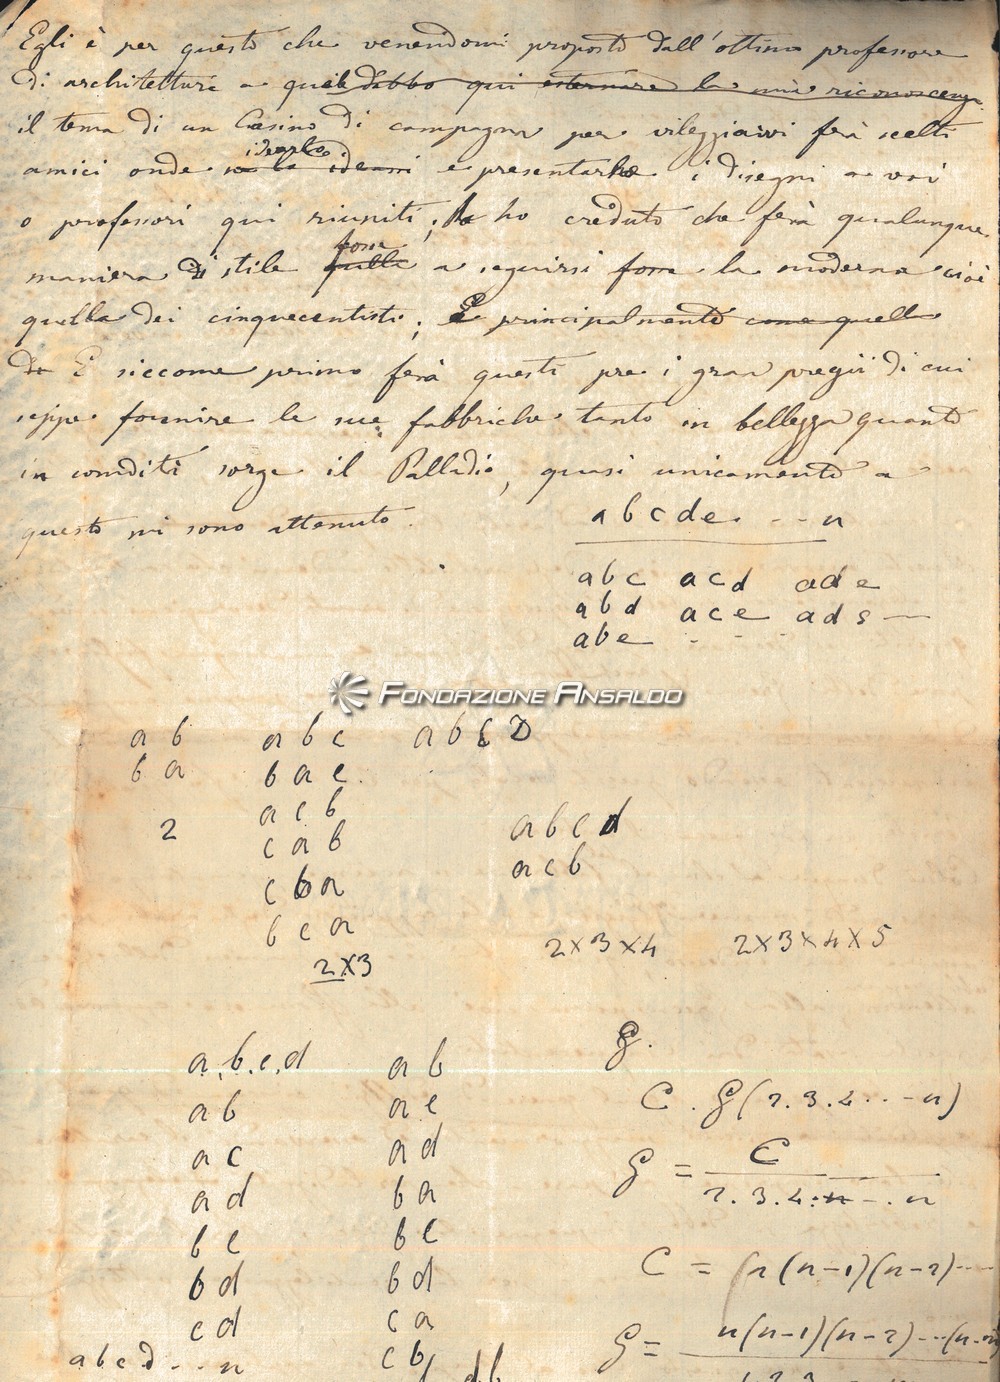 Egli è per questo che venendomi proposto dall'ottimo professore
di architettura a cui debbo qui esternare la mia riconoscenza
il tema di un Casino di campagna per villeggiarvi frà scelti
idearlo
amici onde e presentarne i disegni a voi
o professori qui riuniti; ho creduto che frà qualunque
fosse
maniera di stile quella a seguirsi fosse la moderna cioè
quella dei cinquecentisti; E principalmente come quella
di E siccome primo frà questi pre i gran pregii di cui
seppe fornire le sue fabbriche tanto in bellezza quanto
in comodità sorge il Palladio, quasi unicamente a
questo mi sono attenuto.
a b c d e . - - n
a b c a c d a d e
a b d a c e a d s —
a b e - - -
FONDAZIONE ANSALDO
a b a b c a b c D
b a b a c.
a c b
2 c a b a b c d
c b a a c b
b c a
2×3 2×3×4 2×3×4×5
a, b, c, d a b
a b a c
a c a d
a d b a
b c b c
b d b d
c d c a
a b c d - - n c b
d b
C . (2.3.4 . . - n)
= C
2.3.4 . n - . n
C = (n(n-1)(n-2) - - -
= n(n-1)(n-2) - - (n-